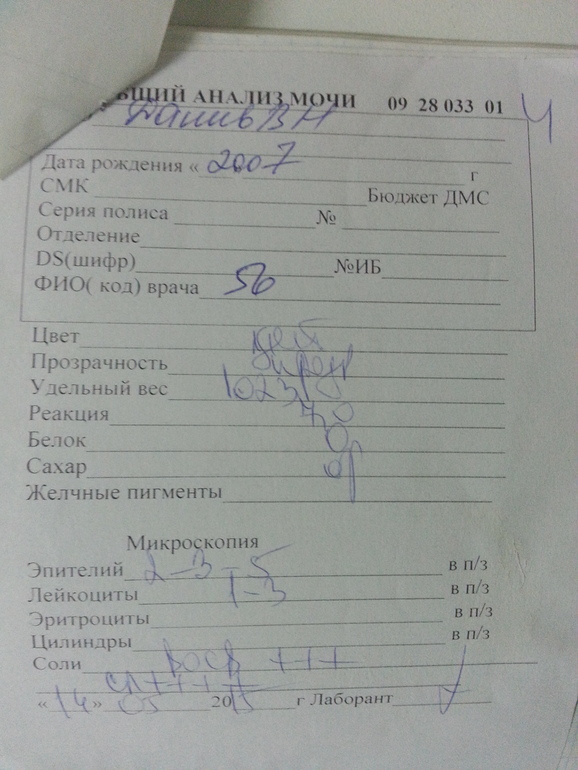 БЩИЙ АНАЛИЗ МОЧИ 09 28 033 01
Дата рождения « 2007 г
СМК Бюджет ДМС
Серия полиса №
Отделение
DS(шифр) №ИБ
ФИО( код) врача 56
Цвет
Прозрачность
Удельный вес 1023
Реакция
Белок 0
Сахар
Желчные пигменты
Микроскопия
Эпителий 2-3-5 в п/з
Лейкоциты 1-3 в п/з
Эритроциты в п/з
Цилиндры в п/з
Соли +++
« 14 » 05 2015 г Лаборант